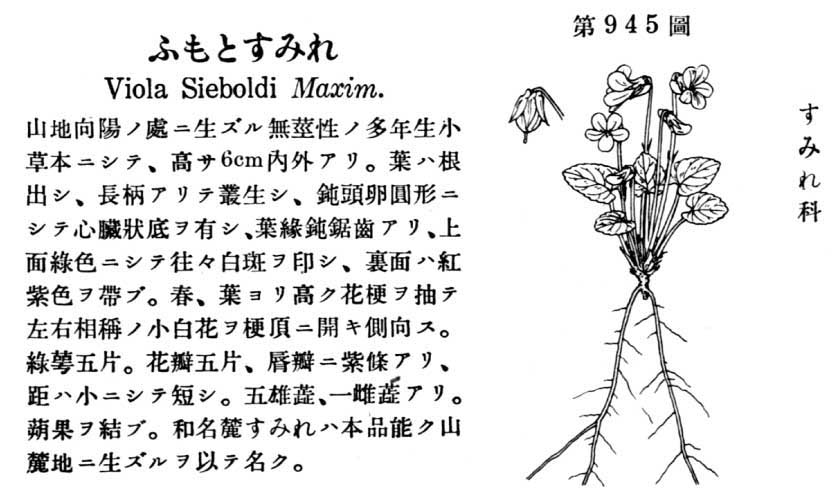 第945圖
すみれ科
ふもとすみれ
Viola Sieboldi Maxim.
山地向陽ノ處ニ生ズル無莖性ノ多年生小
草本ニシテ、高サ6cm內外アリ。葉ハ根
出シ、長柄アリテ叢生シ、鈍頭卵圓形ニ
シテ心臟狀底ヲ有シ、葉緣鈍鋸齒アリ、上
面綠色ニシテ往々白斑ヲ印シ、裏面ハ紅
紫色ヲ帶ブ。春、葉ヨリ高ク花梗ヲ抽テ
左右相稱ノ小白花ヲ梗頂ニ開キ側向ス。
綠萼五片。花瓣五片、脣瓣ニ紫條アリ、
距ハ小ニシテ短シ。五雄蕋、一雌蕋アリ。
蒴果ヲ結ブ。和名麓すみれハ本品能ク山
麓地ニ生ズルヲ以テ名ク。